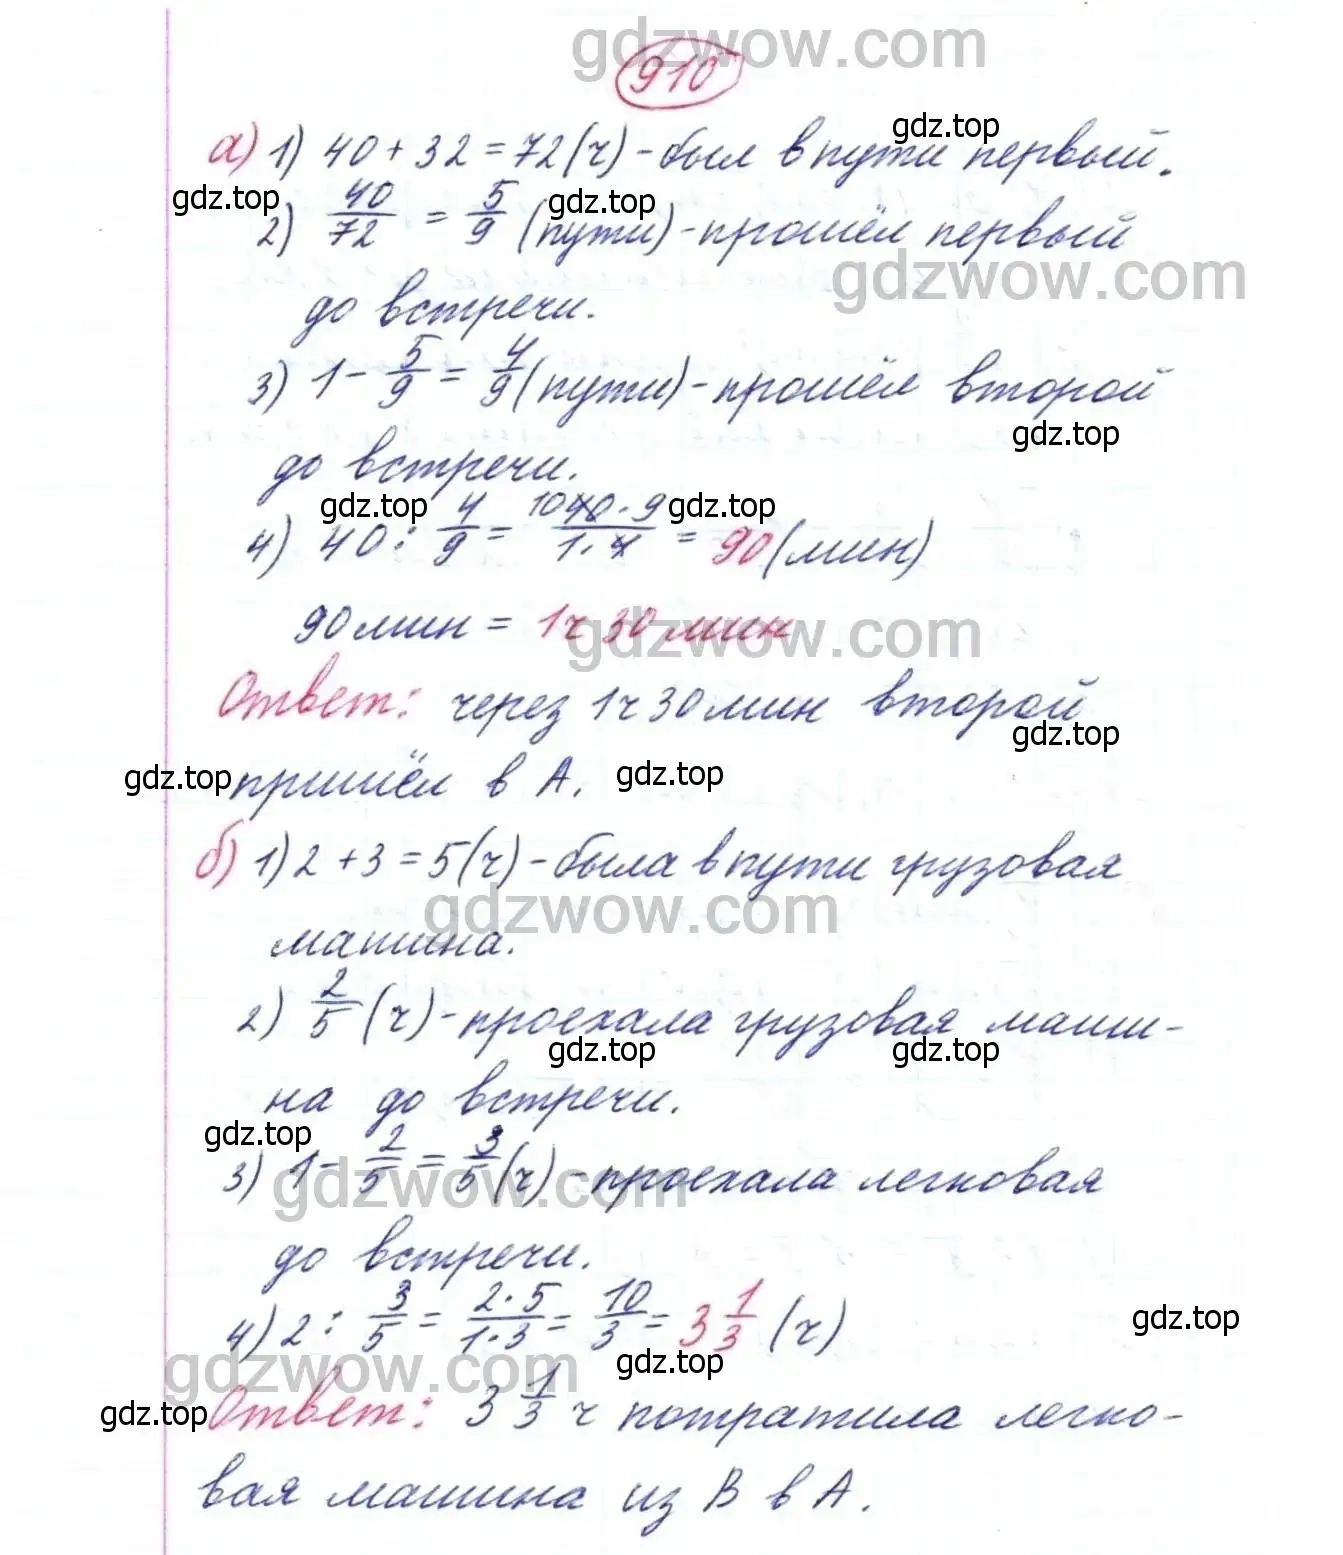 gdzwow.com
910
gdz.top
а) 1) 40 + 32 = 72 (ч) - был в пути первый.
gdz.top gdz.top
2) 40/72 = 5/9 (пути) - прошёл первый
gdzwow.com
до встречи.
3) 1 - 5/9 = 4/9 (пути) - прошёл второй
gdz.top
до встречи.
gdz.top gdz.top
4) 40 : 4/9 = 10 40 · 9/1 · 4 = 90 (мин)
90 мин = 1ч 30 мин
gdzwow.com
Ответ: через 1ч 30 мин второй
gdz.top
gdz.top пришёл в А. gdz.top
б) 1) 2 + 3 = 5 (ч) - была в пути грузовая
gdzwow.com
машина.
2) 2/5 (ч) - проехала грузовая маши-
gdz.top gdz.top
на до встречи.
gdz.top
3) 1 - 2/5 = 3/5 (ч) - проехала легковая
gdzwow.com
до встречи.
4) 2 : 3/5 = 2 · 5/1 · 3 = 10/3 = 3 1/3 (ч)
gdz.top
gdzwow.com gdz.top
gdz.top Ответ: 3 1/3 ч потратила легко-
вая машина из В в А.